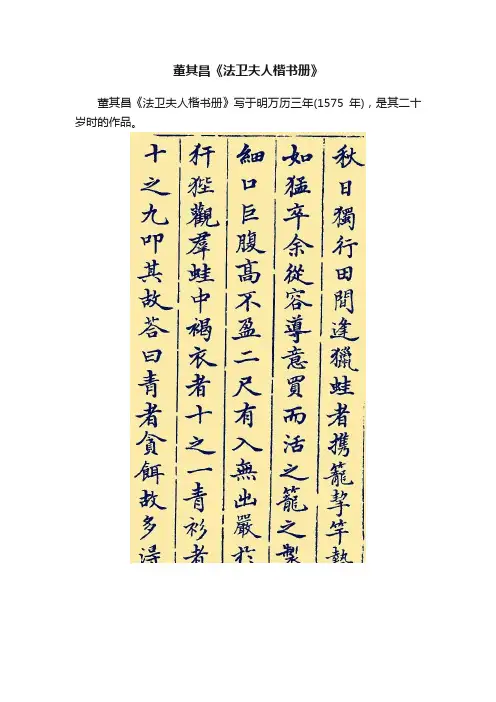 董其昌《法卫夫人楷书册》
董其昌《法卫夫人楷书册》写于明万历三年(1575 年)，是其二十
岁时的作品。
秋日獨行田間逢獵蛙者携籠挈竿執
如猛卒余從容導意買而活之籠之製
細口巨腹高不盈二尺有入無出嚴於
犴狴觀羣蛙中褐衣者十之一青衫者
十之九叩其故荅曰青者貪餌故多淂